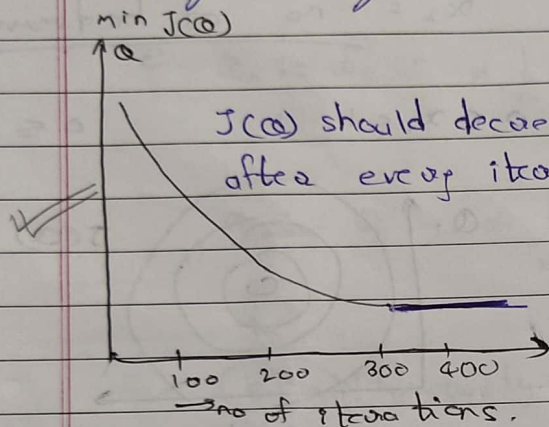 min J(θ)
θ
J(θ) should decre
after every itera
100 200 300 400
→ no of iterations.